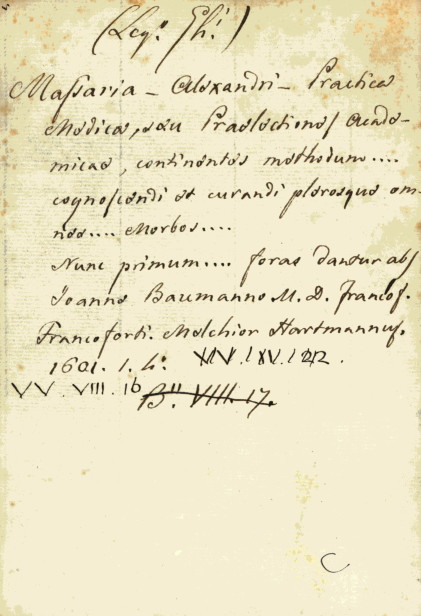 (Leg.º Gh.)
Massaria – Alexandri – Practica
Medica, seu Praelectiones Acade-
micae, continentes methodum....
cognoscendi et curandi plerosque om-
nes.... Morbos....
Nunc primum.... foras dantur abs
Joanne Baumanno M. D. Francof.
Francoforti. Melchior Hartmannus.
1601. 1. 4.º
VV. VIII. 16 B. VIII. 17.
C